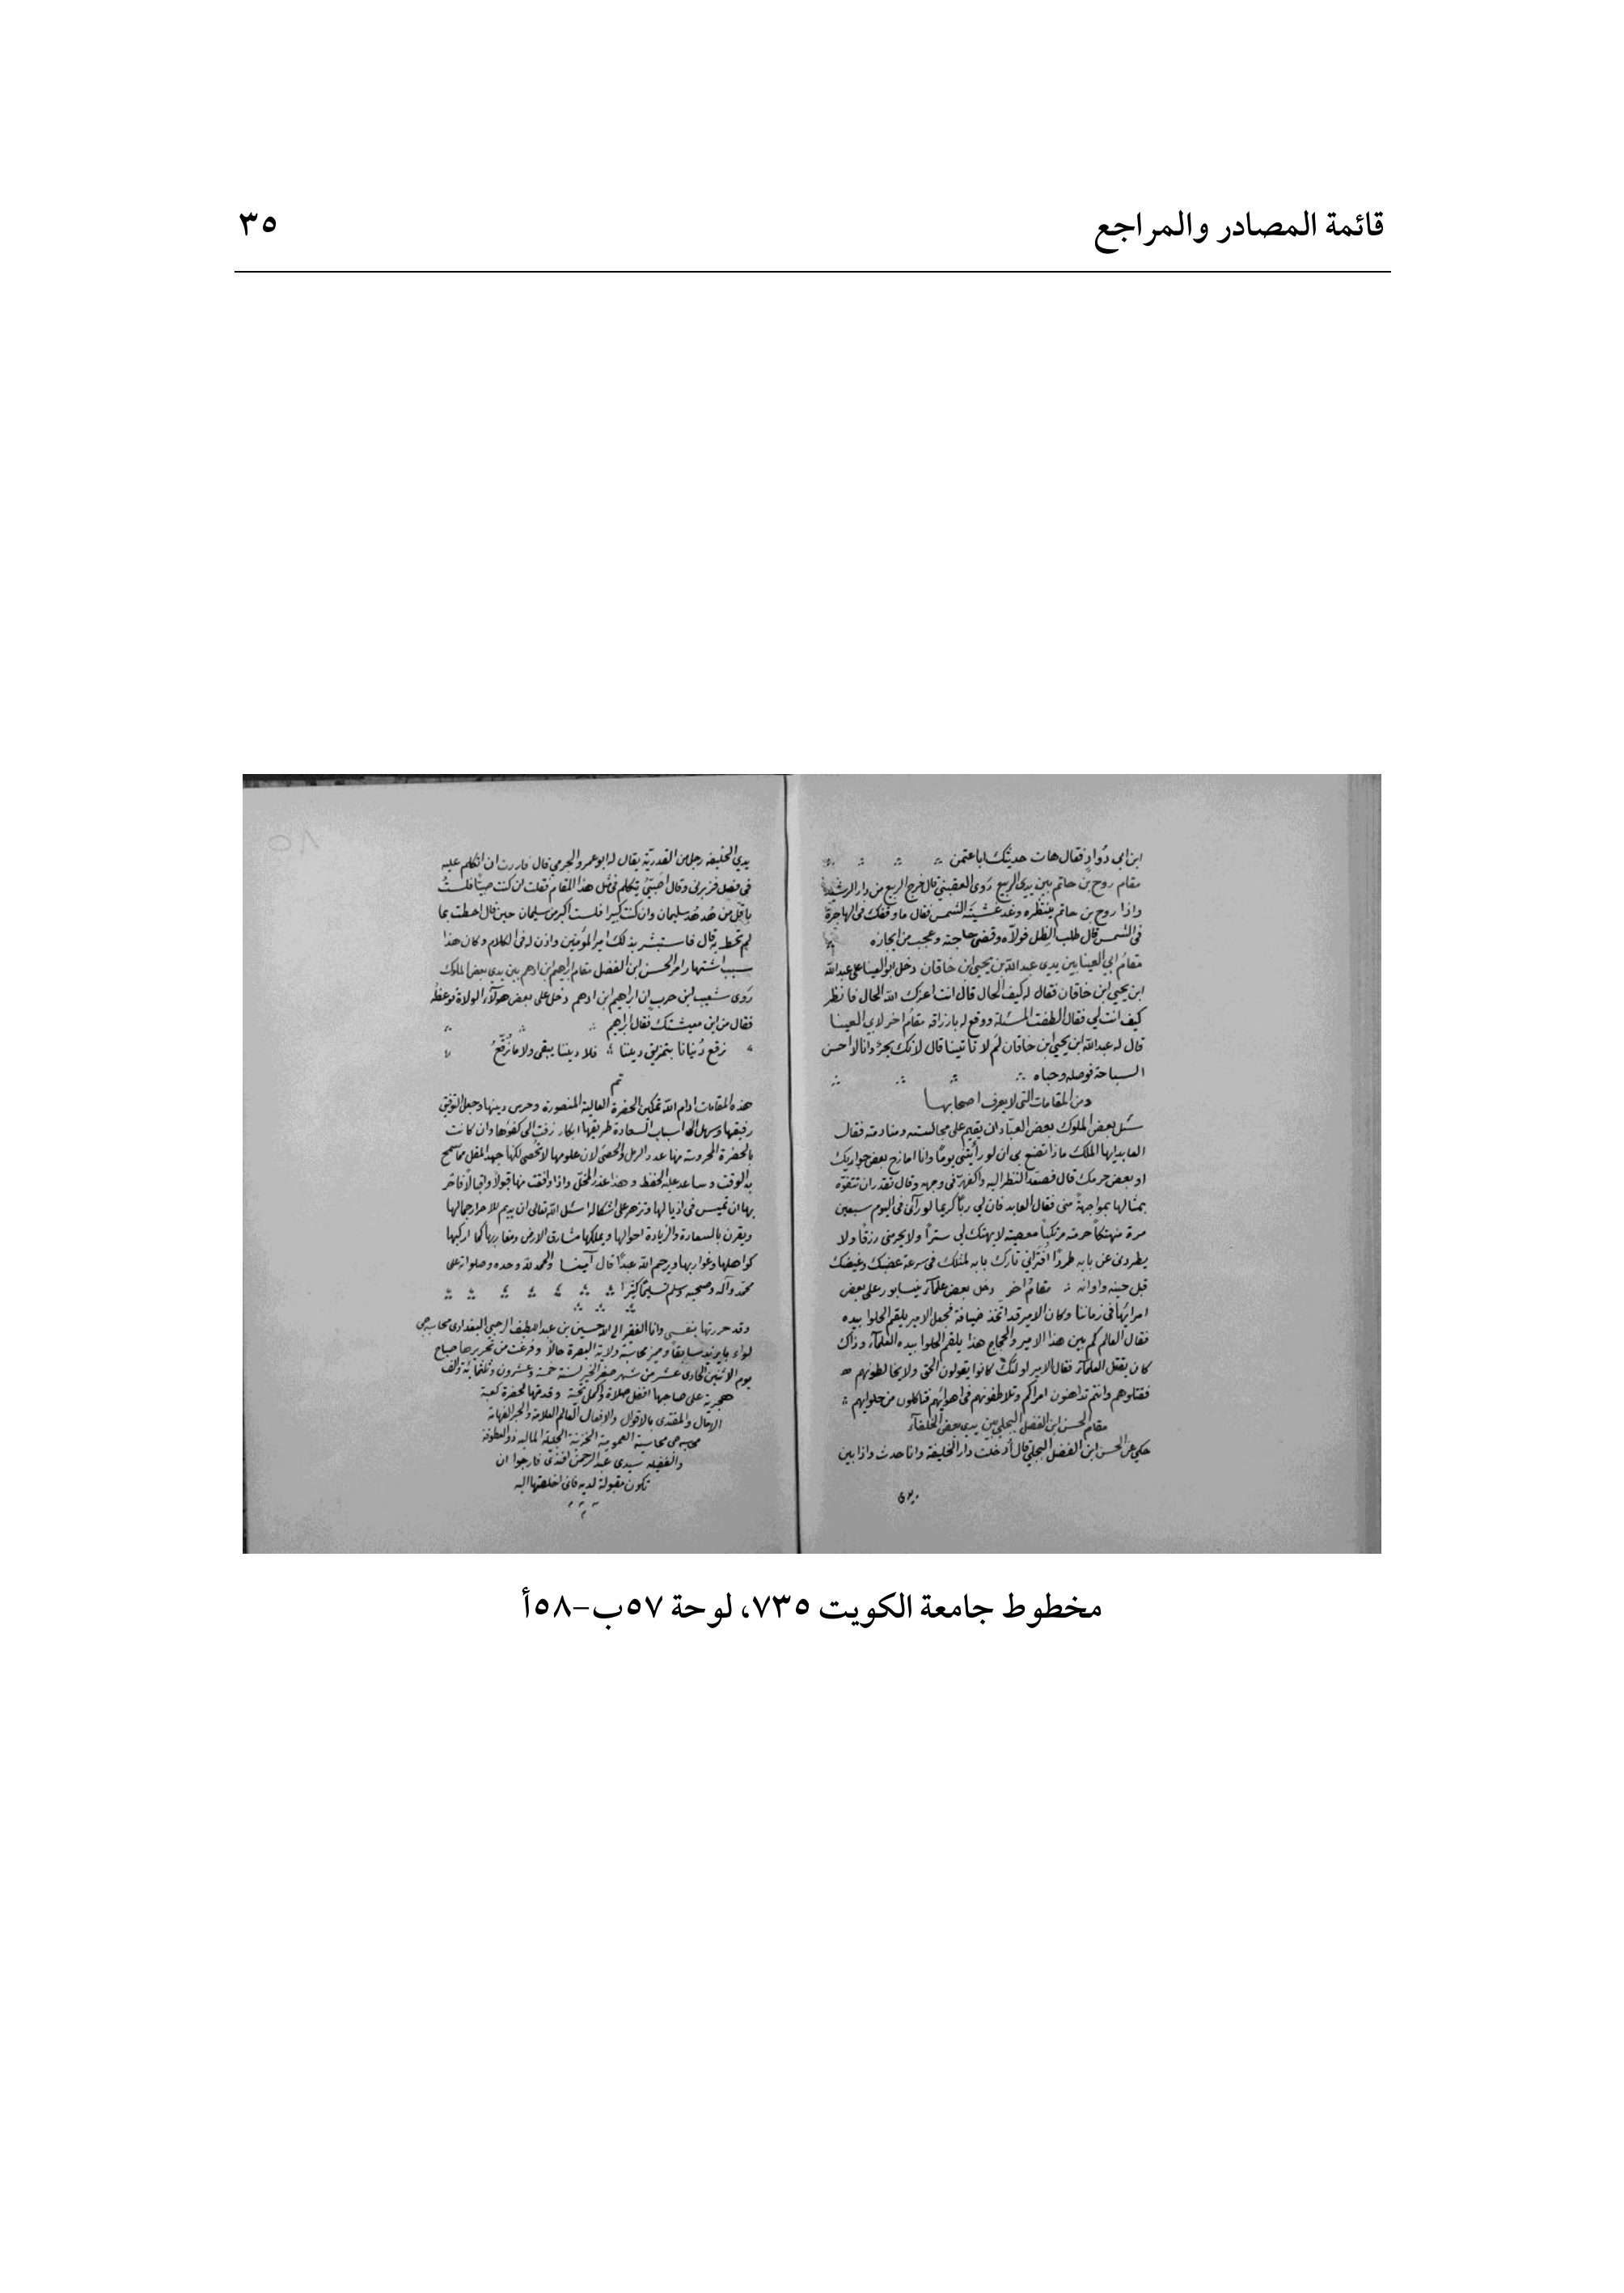 قائمة المصادر والمراجع ٣٥
ابن ابى دُوادٍ فقال هات حديثك اباعثمن
مقام روح بن حاتم بين يدى الربيع رَوى العقبىّ قال خرج الربيع من دار الرشيد
واذا روح بن حاتم ينتظره وقد غشيته الشمس فقال ما وقفك فى الهاجرة
فى الشمس قال طلب الظل فولّاه وقضى حاجته وعجب من ايجازه
مقام ابي العينا بين يدى عبدالله بن يحيى ابن خاقان دخل ابو العينا على عبدالله
ابن يحيى ابن خاقان فقال له كيف الحال قال انت اعزك الله الحال فانظر
كيف انت لي فقال الطفت المسئلة ووقع له بارزاقه مقام اخر لابي العينا
قال له عبدالله ابن يحيى ابن خاقان لم لا تاتينا قال لانك بحرٌ وانا لا احسن
السباحة فوصله وحباه
ومن المقامات التى لا يعرف اصحابها
سئل بعض الملوك بعض العبّاد ان يقيم على مجالسته ومنادمته فقال
العابد ايها الملك ماذا تصنع بى ان لو رأيتنى يومًا وانا امازح بعض جواريك
او بعض حرمك قال فصعّد النظر اليه واكفهرّ فى وجهه وقال تقدر ان تتفوّه
بمثالها بمواجهةً منى فقال العابد فان لي ربّاً كريما لو رآنى فى اليوم سبعين
مرة منهتكاً حرمته مرتكباً معصيته لا يهتك لي ستراً ولا يحرمنى رزقًا ولا
يطردنى عن بابه طردًا افترانى تارك بابه لمثلك فى سرعة غضبك وغيضك
قبل حينه واوانه مقام اخر دخل بعض علمآء نيسابور على بعض
امرايها فى زماننا وكان الامير قد اتخذ ضيافة فجعل الامير يلقم الحلوا بيده
فقال العالم كم بين هذا الامير والحجاج هذا يلقم الحلوا بيده العلمآء وذاك
كان يقتل العلمآء فقال الامير اولئك كانوا يقولون الحق ولا يخالطونهم
فقتلوهم وانتم تداهنون امراكم وتلاطفونهم فى اهوائهم فتاكلون من حلوايهم
مقام الحسن ابن الفضل البجلي بين يدى بعض الخلفآء
حكي عن الحسن ابن الفضل البجلي قال أدخلت دار الخليفة وانا حدث واذا بين
يدى
يدي الخليفة رجل من القدريّة يقال له ابو عمرو الجرمي قال فاردت ان اتكلم عليه
فى فصل فزبرنى وقال أصبيّ يتكلم فى مثل هذا المقام فقلت ان كنت صبيّا فلستُ
باقل من هُدهُد سليمان وان كنت كبيرا فلست اكبر من سليمان حين قال احطت بما
لم تحط به قال فاستبشر بذلك امير المؤمنين واذن له فى الكلام وكان هذا
سبب اشتهار امر الحسن ابن الفضل مقام ابراهيم ابن ادهم بين يدي بعض الملوك
رَوى شعيب ابن حرب ان ابراهيم ابن ادهم دخل على بعض هولآء الولاة فوعظه
فقال من اين معيشتك فقال ابراهيم
نرقع دُنيانا بتمزيق ديننا فلا ديننا يبقى ولا ما نُرقّعُ
تم
هذه المقامات ادام الله تمكين الحضرة العالية المنصورة وحرس دينها وجعل التوفيق
رفيقها وسهل الى اسباب السعادة طريقها ابكار زفت الى كفؤها وان كانت
بالحضرة المحروسة منها عدد الرمل والحصى لان علومها لا تحصى لكنها جهد المقل مما سمح
به الوقت وساعد عليه الحفظ وهذا عذر المخلّ واذا وافقت منها قبولًا واقبالًا فاخر
بها ان تميس فى اذيالها وتزهر على اشكالها اسئل الله تعالى ان يديم للاحرار جمالها
ويقرن بالسعادة والزيادة احوالها ويملكها مشارق الارض ومغاربها كما اركبها
كواهلها وغواربها ويرحم الله عبدًا قال آمينا والحمد لله وحده وصلواته على
محمد وآله وصحبه وسلم تسليمًا كثيرًا
وقد حررتها بنفسي وانا الفقير الى الله حسين بن عبد اللطيف الرحبي البغدادى محاسبجى
لواء بايزيد سابقاً ومميز محاسبة ولاية البصرة حالًا وفرغت من تحريرها صباح
يوم الاثنين الحادى عشر من شهر صفر الخير لسنة خمسة وعشرون وثلثمائة والف
هجرية على صاحبها افضل صلاة واكمل تحية وقدمتها لحضرة كعبة
الامال والمقتدى بالاقوال والافعال العالم العلامة والحبر الفهامة
محاسبجى محاسبة العمومية الخزينة الجليلة المالية ذو العطوفة
والفضيله سيدى عبدالرحمن افندى فارجوا ان
تكون مقبولة لديه فانى اخلصتها اليه
مخطوط جامعة الكويت ٧٣٥، لوحة ٥٧ب-٥٨أ